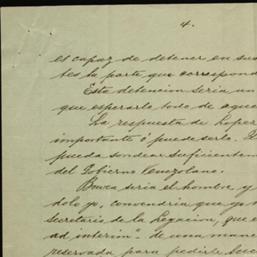 4.
el capaz de detener en sus
tes la parte que correspond
Esta detencion seria un
que esperarlo todo de aque
La respuesta de Lopez
importante ó puede serlo.
pueda sondear suficientem
del Gobierno Venezolano.
Buena seria el hombre, y
dolo yo, convendria que yo
secretario de la Legacion, que
ad interin" de una mane
reservada para pedirle